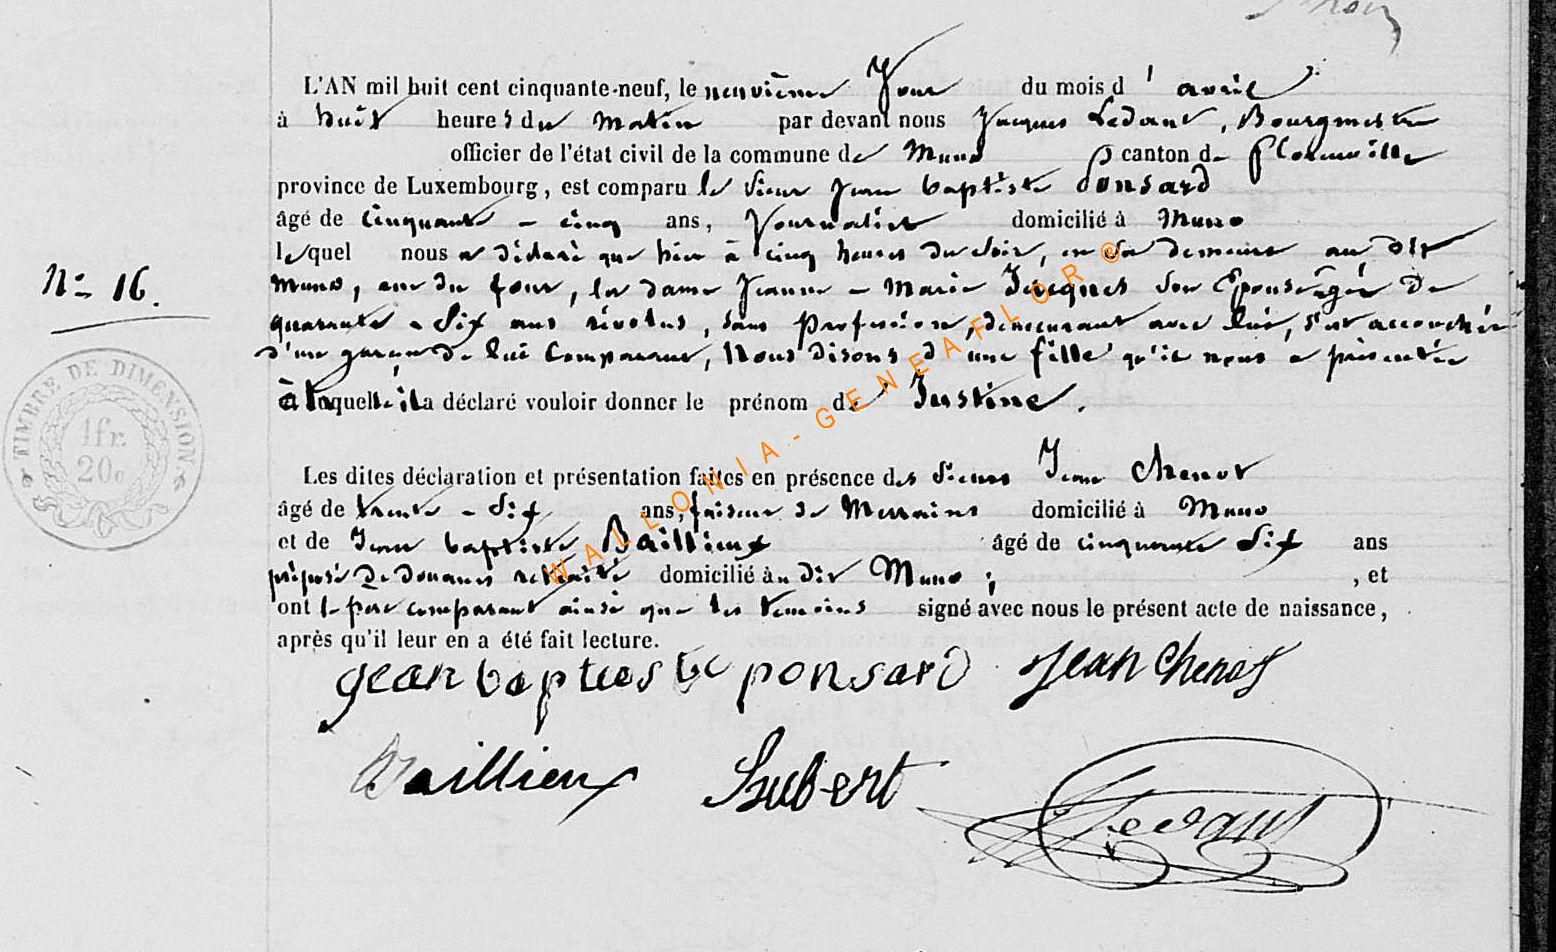 L'AN mil huit cent cinquante-neuf, le neuvième Jour du mois d'avril
à huit heures du Matin par devant nous Jacques Ledant, Bourgmestre
officier de l'état civil de la commune de Muno canton de Florenville
province de Luxembourg, est comparu le Sieur Jean baptiste Ponsard
âgé de cinquante-cinq ans, Journalier domicilié à Muno
lequel nous a déclaré que hier à cinq heures du Soir, en sa demeure au dit
Muno, rue du four, la dame Jeanne-Marie Jacques son Epouse âgée de
N° 16.
quarante-six ans révolus, sans profession, demeurant avec lui, s'est accouchée
d'un garçon de lui Comparant, Nous disons d'une fille qu'il nous a présentée
à laquelle il a déclaré vouloir donner le prénom de Justine.
TIMBRE DE DIMENSION
1 fr.
20 c
Les dites déclaration et présentation faites en présence des Sieurs Jean Chenot
âgé de trente-six ans, faiseur de Merrains domicilié à Muno
et de Jean baptiste Baillieux âgé de cinquante six ans
préposé de douanes retraité domicilié au dit Muno ; , et
ont le père comparant ainsi que les témoins signé avec nous le présent acte de naissance,
après qu'il leur en a été fait lecture.
jean baptieste ponsard Jean Chenot
Baillieux Hubert Ledant
WALLONIA-GENEAFLOR©